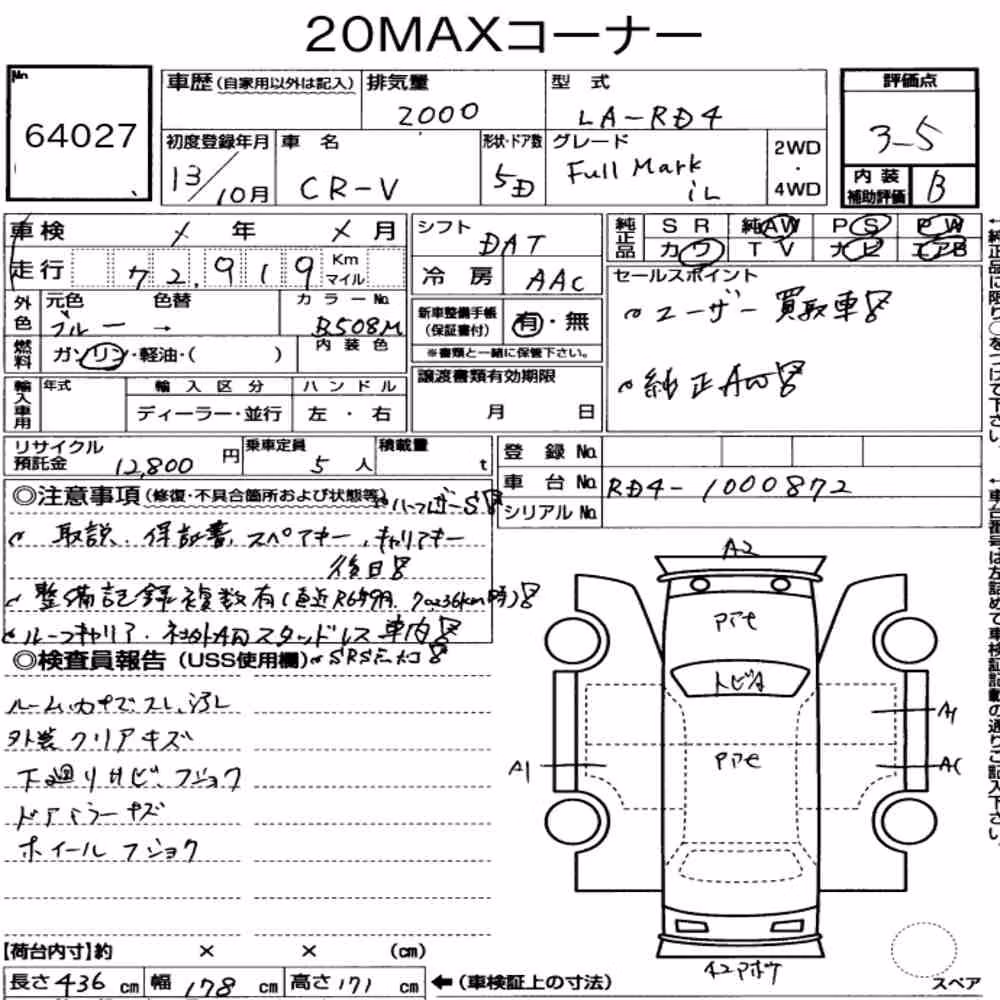 20MAXコーナー
No.
64027
車歴(自家用以外は記入)
排気量
2000
型式
LA-RD4
評価点
3.5
初度登録年月
13/10月
車名
CR-V
形状・ドア数
5D
グレード
Full Mark
iL
2WD
・
4WD
内装
補助評価
B
車検 年 月
走行 72,919 Km
マイル
シフト
DAT
冷房
AAC
純正品
SR 純AW PS PW
カワ TV ナビ エアB
外色
元色 色替
ブルー →
カラーNo.
B508M
新車整備手帳
(保証書付)
有・無
※書類と一緒に保管下さい。
セールスポイント
ユーザー買取車
純正AW
燃料
ガソリン・軽油・( )
内装色
輸入車用
年式
輸入区分
ディーラー・並行
ハンドル
左・右
譲渡書類有効期限
月 日
リサイクル
預託金
12,800円
乗車定員
5人
積載量
t
登録No.
車台No.
RD4-1000872
シリアルNo.
◎注意事項(修復・不具合箇所および状態等)
取説、保証書、スペアキー、キャリアキー
後日
整備記録複数有
ルーフキャリア・社外AWスタッドレス車内
◎検査員報告(USS使用欄)
ルーム内キズスレ、汚レ
外装クリアキズ
下廻りサビ、フショク
ドアミラーキズ
ホイールフショク
A2
トビA
A1
A1
A1
【荷台内寸】約 × × (cm)
長さ436cm 幅178cm 高さ171cm
←(車検証上の寸法)
スペア
←純正品に限り○をつけて下さい。
←車台番号は左詰めで車検証記載の通りご記入下さい。